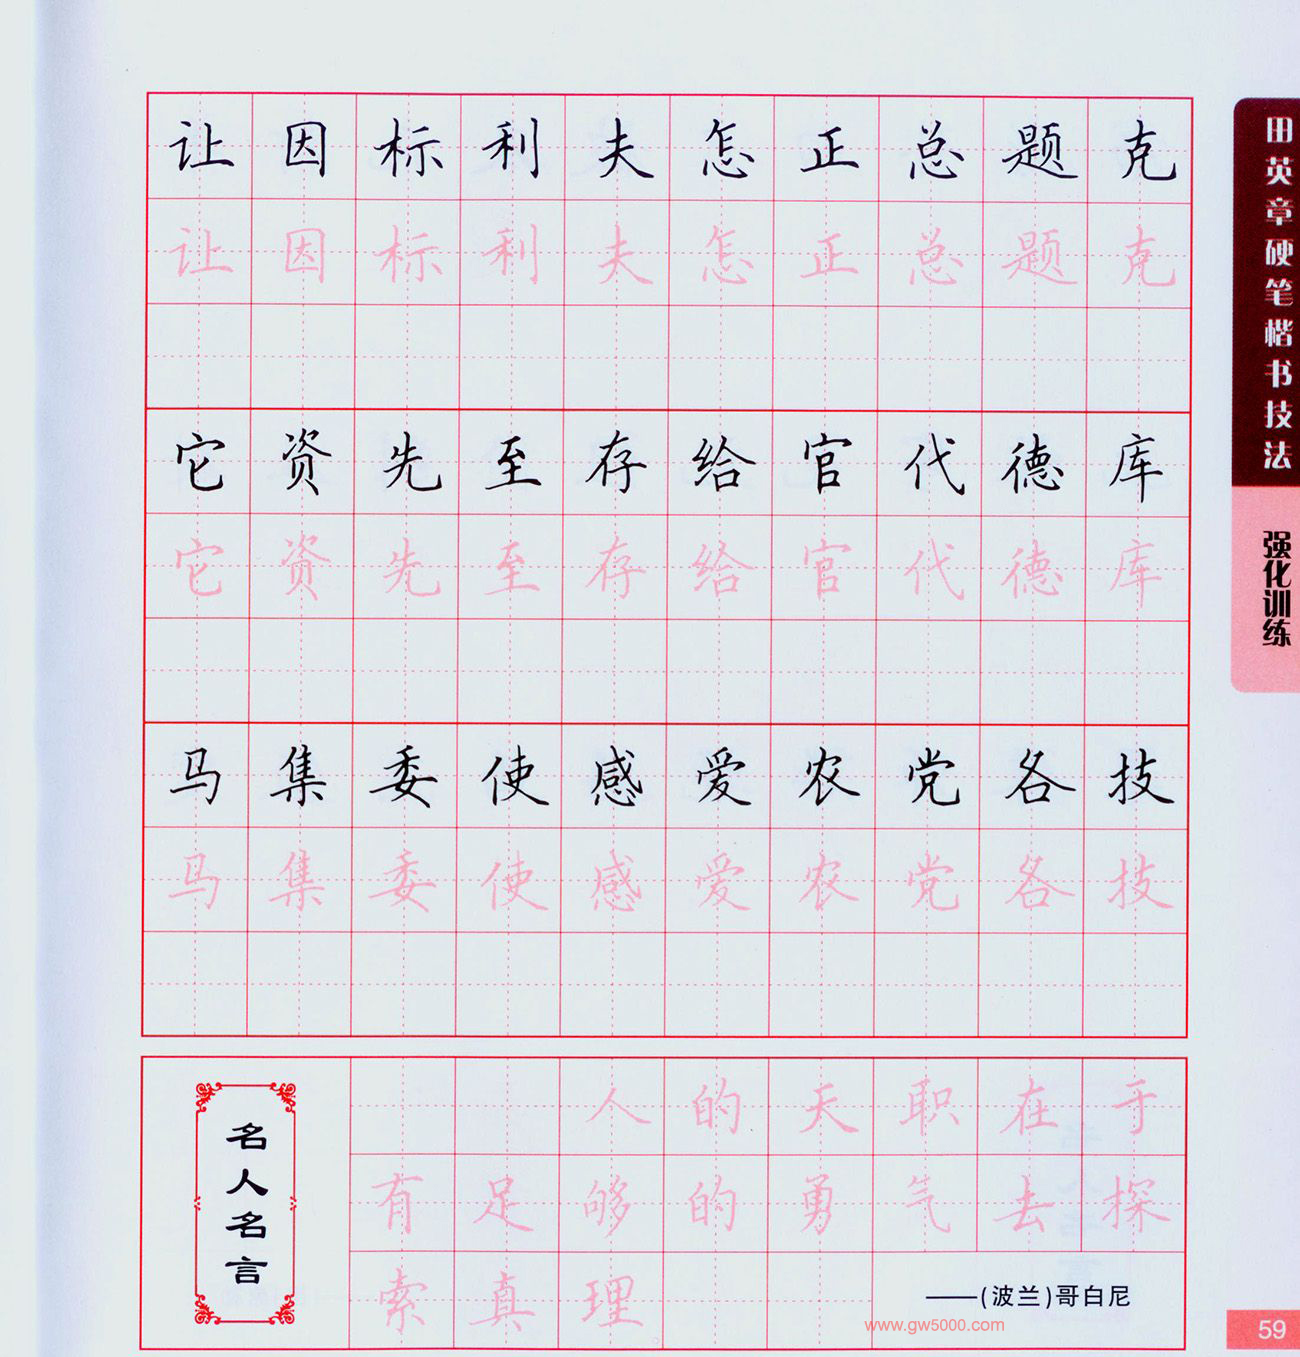 让因标利夫怎正总题克
让因标利夫怎正总题克
它资先至存给官代德库
它资先至存给官代德库
马集委使感爱农党各技
马集委使感爱农党各技
名人名言
人的天职在于
有足够的勇气去探
索真理
——(波兰)哥白尼
www.gw5000.com
田英章硬笔楷书技法
强化训练
59